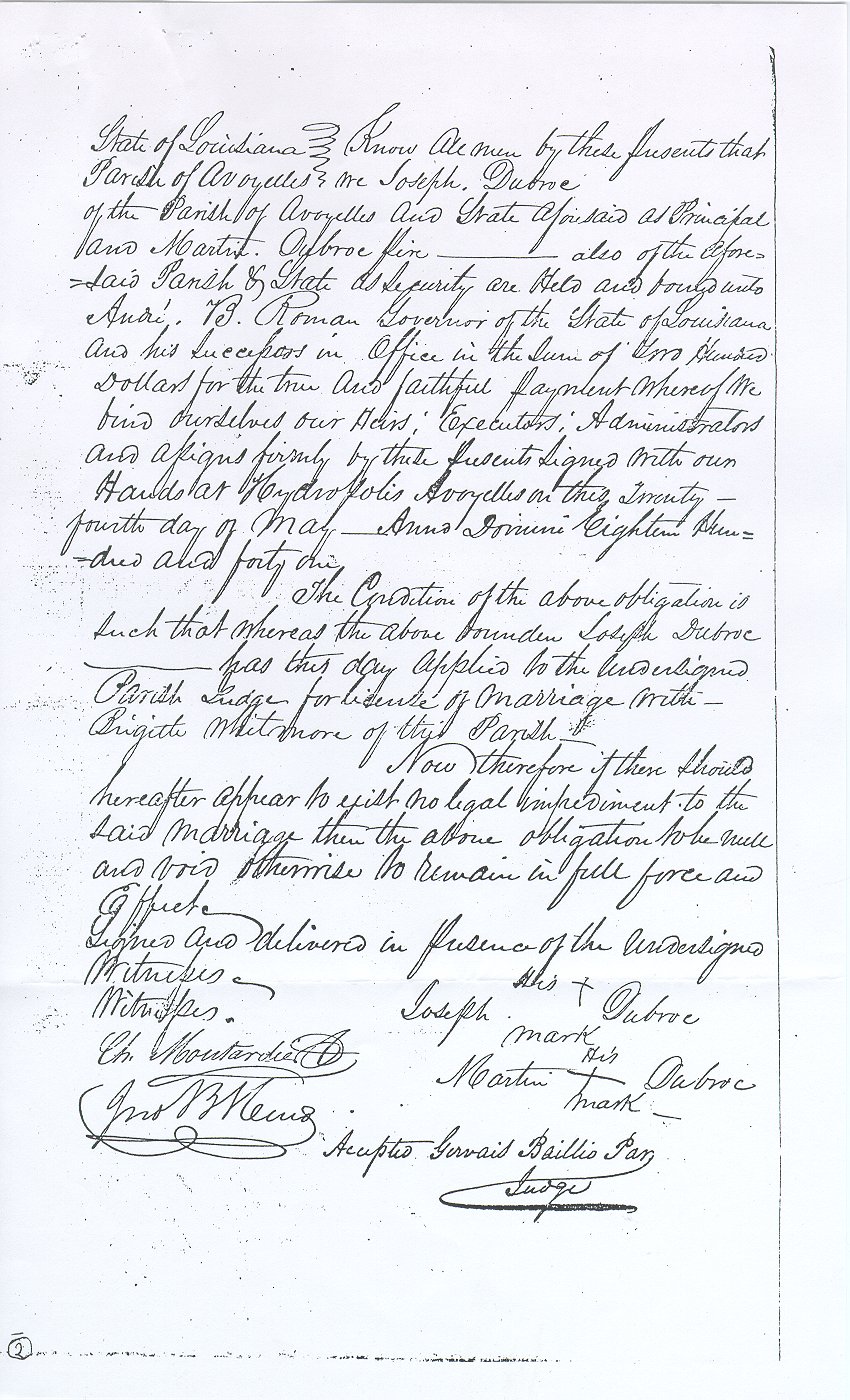 State of Louisiana } Know All men by these Presents that
Parish of Avoyelles } We Joseph. Dubroc
of the Parish of Avoyelles And State Aforesaid as Principal
And Martin. Dubroc Pire ——— also of the Afore=
=said Parish & State as Security are Held and bound unto
André. B. Roman Governor of the State of Louisiana
And his Successors in Office in the Sum of Two Hundred
Dollars for the true And faithful Payment Whereof We
bind ourselves our Heirs; Executors; Administrators
and assigns firmly by these Presents Signed With our
Hands at Hydropolis Avoyelles on this Twenty –
fourth day of May — Anno Domini Eighteen Hun=
=dred and forty one
The Condition of the above obligation is
Such that Whereas the above bounden Joseph Dubroc
——— has this day Applied to the Undersigned
Parish Judge for license of Marriage With –
Brigitte Whitmore of this Parish –
Now therefore if there should
hereafter appear to exist no legal impediment to the
said Marriage then the above obligation to be null
and void otherwise to remain in full force and
Effect
Signed And delivered in Presence of the Undersigned
Witnesses
Witnesses.
His
Joseph. + Dubroc
mark
Ch. Moutardier
His
Martin + Dubroc
mark –
Jno B
Accepted Gervais Baillio Par
Judge
2